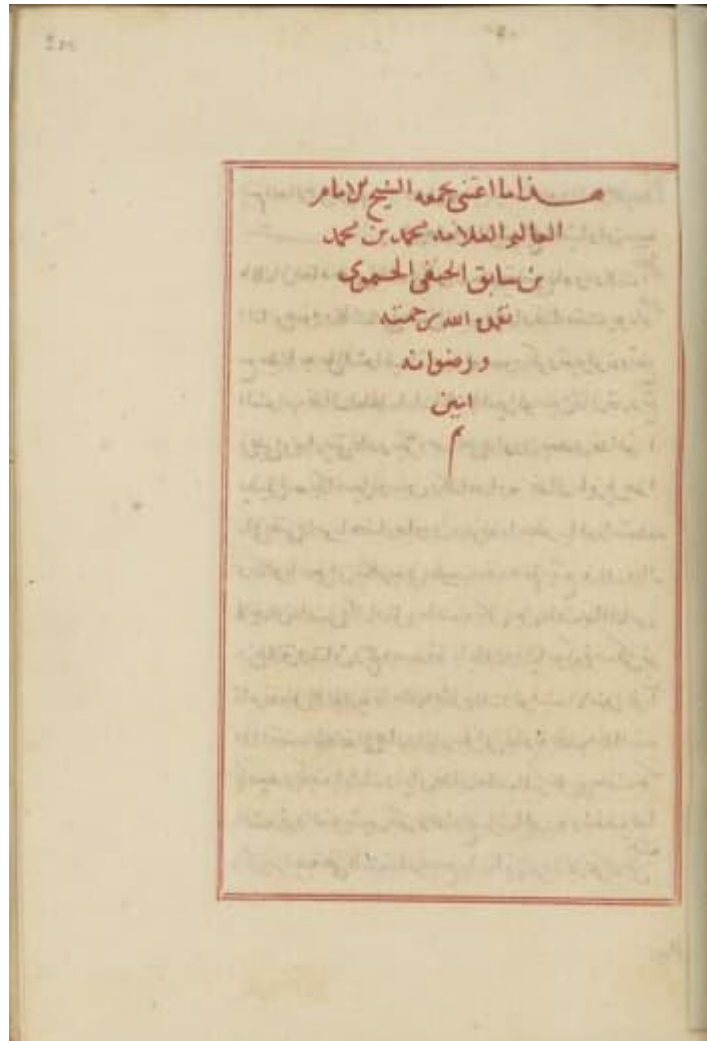 هذا ما اعتنى بجمعه الشيخ الامام
العالم العلامه محمد بن محمد
بن سابق الحنفي الحموي
تغمده الله برحمته
ورضوانه
امين
م